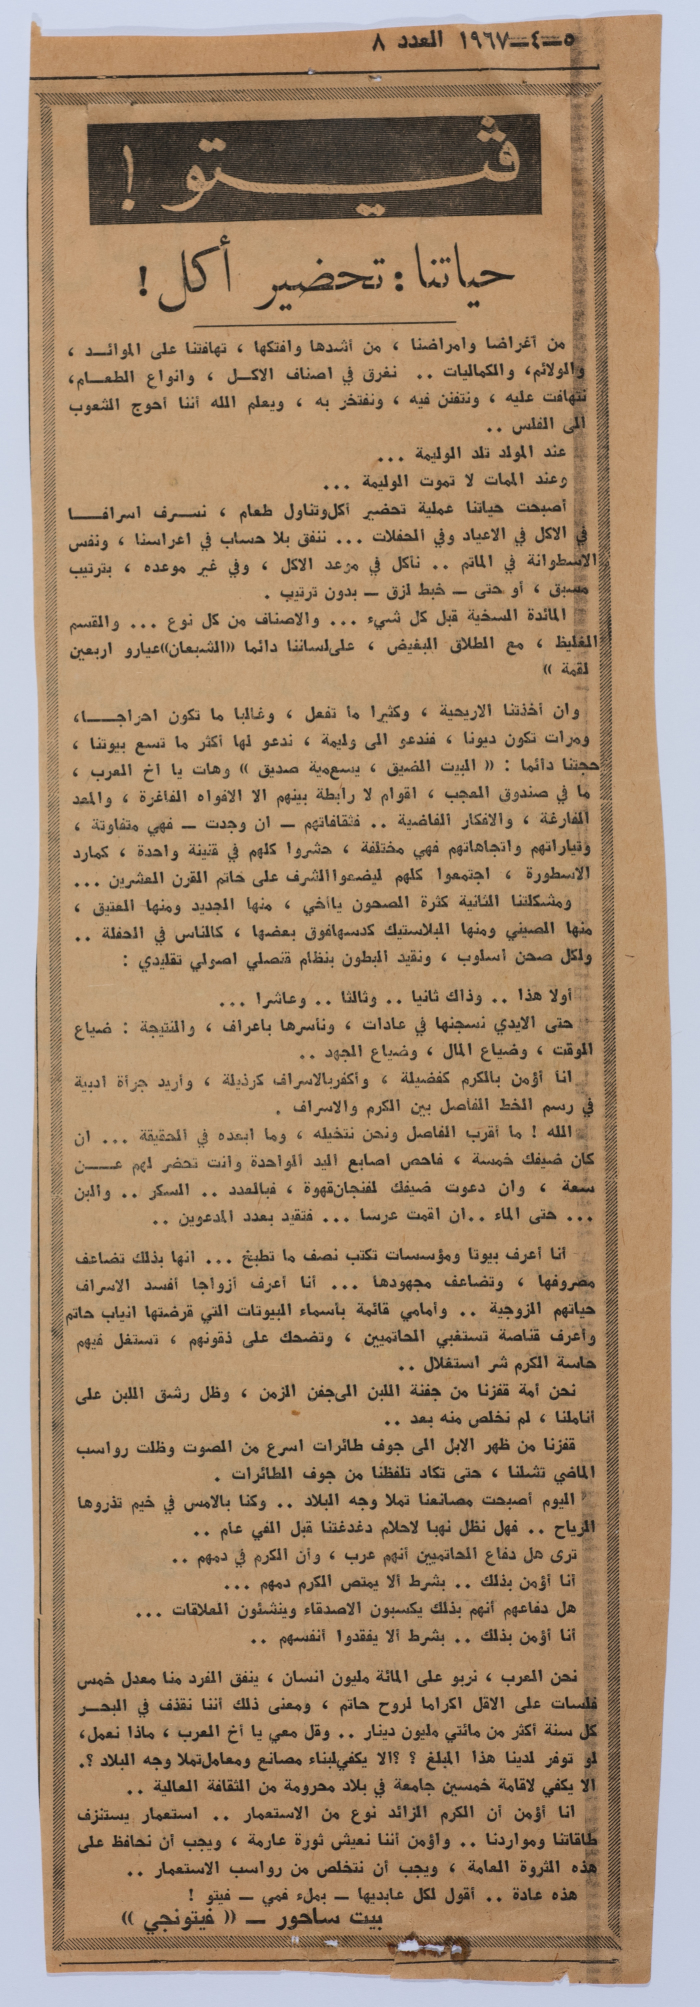 ٥–٤–١٩٦٧ العدد ٨
ڤيتو !
حياتنا : تحضير أكل !
من أغراضنا وامراضنا ، من أشدها وافتكها ، تهافتنا على الموائد ،
والولائم، والكماليات .. نغرق في اصناف الاكل ، وانواع الطعام،
نتهافت عليه ، ونتفنن فيه ، ونفتخر به ، ويعلم الله أننا أحوج الشعوب
الى الفلس ..
عند المولد تلد الوليمة ...
وعند الممات لا تموت الوليمة ...
أصبحت حياتنا عملية تحضير أكل وتناول طعام ، نسرف اسرافا
في الاكل في الاعياد وفي الحفلات ... ننفق بلا حساب في اعراسنا ، ونفس
الاسطوانة في المآتم .. نأكل في موعد الاكل ، وفي غير موعده ، بترتيب
مسبق ، أو حتى – خبط لزق – بدون ترتيب .
المائدة السخية قبل كل شيء ... والاصناف من كل نوع ... والقسم
الغليظ ، مع الطلاق البغيض ، على لساننا دائما ((الشبعان))عيارو اربعين
لقمة ))
وان أخذتنا الاريحية ، وكثيرا ما تفعل ، وغالبا ما تكون احراجا،
ومرات تكون ديونا ، فندعو الى وليمة ، ندعو لها أكثر ما تسع بيوتنا ،
حجتنا دائما : (( البيت الضيق ، يسع مية صديق )) وهات يا اخ العرب ،
ما في صندوق العجب ، اقوام لا رابطة بينهم الا الافواه الفاغرة ، والمعد
الفارغة ، والافكار الفاضية .. فثقافاتهم – ان وجدت – فهي متفاوتة ،
وتياراتهم واتجاهاتهم فهي مختلفة ، حشروا كلهم في قنينة واحدة ، كمارد
الاسطورة ، اجتمعوا كلهم ليضعوا الشرف على خاتم القرن العشرين ...
ومشكلتنا الثانية كثرة الصحون ياأخي ، منها الجديد ومنها العتيق ،
منها الصيني ومنها البلاستيك كدسها فوق بعضها ، كالناس في الحفلة ..
ولكل صحن أسلوب ، ونقيد البطون بنظام قنصلي اصولي تقليدي :
أولا هذا .. وذاك ثانيا .. وثالثا .. وعاشرا ...
حتى الايدي نسجنها في عادات ، ونأسرها باعراف ، والنتيجة : ضياع
الوقت ، وضياع المال ، وضياع الجهد ..
انا أؤمن بالكرم كفضيلة ، وأكفر بالاسراف كرذيلة ، وأريد جرأة ادبية
في رسم الخط الفاصل بين الكرم والاسراف .
الله ! ما أقرب الفاصل ونحن نتخيله ، وما ابعده في الحقيقة ... ان
كان ضيفك خمسة ، فاحص اصابع اليد الواحدة وانت تحضر لهم عن
سعة ، وان دعوت ضيفك لفنجان قهوة ، فبالعدد .. السكر .. والبن
... حتى الماء .. ان اقمت عرسا ... فتقيد بعدد المدعوين ..
أنا أعرف بيوتا ومؤسسات تكتب نصف ما تطبخ ... انها بذلك تضاعف
مصروفها ، وتضاعف مجهودها ... أنا أعرف أزواجا أفسد الاسراف
حياتهم الزوجية .. وأمامي قائمة بأسماء البيوتات التي قرضتها انياب حاتم
وأعرف قناصة تستغبي الحاتميين ، وتضحك على ذقونهم ، تستغل فيهم
حاسة الكرم شر استغلال ..
نحن أمة قفزنا من جفنة اللبن الى جفن الزمن ، وظل رشق اللبن على
أناملنا ، لم نخلص منه بعد ..
قفزنا من ظهر الابل الى جوف طائرات اسرع من الصوت وظلت رواسب
الماضي تشلنا ، حتى تكاد تلفظنا من جوف الطائرات .
اليوم أصبحت مصانعنا تملا وجه البلاد .. وكنا بالامس في خيم تذروها
الرياح .. فهل نظل نهبا لاحلام دغدغتنا قبل الفي عام ..
ترى هل دفاع الحاتميين أنهم عرب ، وأن الكرم في دمهم ..
أنا أؤمن بذلك .. بشرط ألا يمتص الكرم دمهم ...
هل دفاعهم أنهم بذلك يكسبون الاصدقاء وينشئون العلاقات ...
أنا أؤمن بذلك .. بشرط ألا يفقدوا أنفسهم ..
نحن العرب ، نربو على المائة مليون انسان ، ينفق الفرد منا معدل خمس
فلسات على الاقل اكراما لروح حاتم ، ومعنى ذلك أننا نقذف في البحر
كل سنة أكثر من مائتي مليون دينار .. وقل معي يا أخ العرب ، ماذا نعمل،
لو توفر لدينا هذا المبلغ ؟ ؟الا يكفي لبناء مصانع ومعامل تملا وجه البلاد ؟.
الا يكفي لاقامة خمسين جامعة في بلاد محرومة من الثقافة العالية ..
انا أؤمن أن الكرم الزائد نوع من الاستعمار .. استعمار يستنزف
طاقاتنا ومواردنا .. وأؤمن أننا نعيش ثورة عارمة ، ويجب أن نحافظ على
هذه الثروة العامة ، ويجب أن نتخلص من رواسب الاستعمار ..
هذه عادة .. أقول لكل عابديها – بملء فمي – فيتو !
بيت ساحور – (( فيتونجي ))